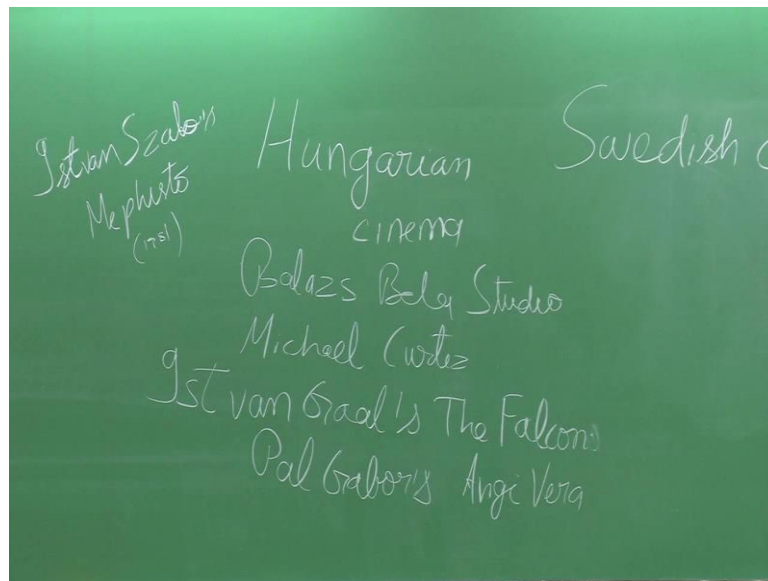 Istvan Szabo's
Mephisto
(1981)
Hungarian
cinema
Balazs Bela Studio
Michael Curtez
Istvan Graal's The Falcons
Pal Grabor's Angi Vera
Swedish c